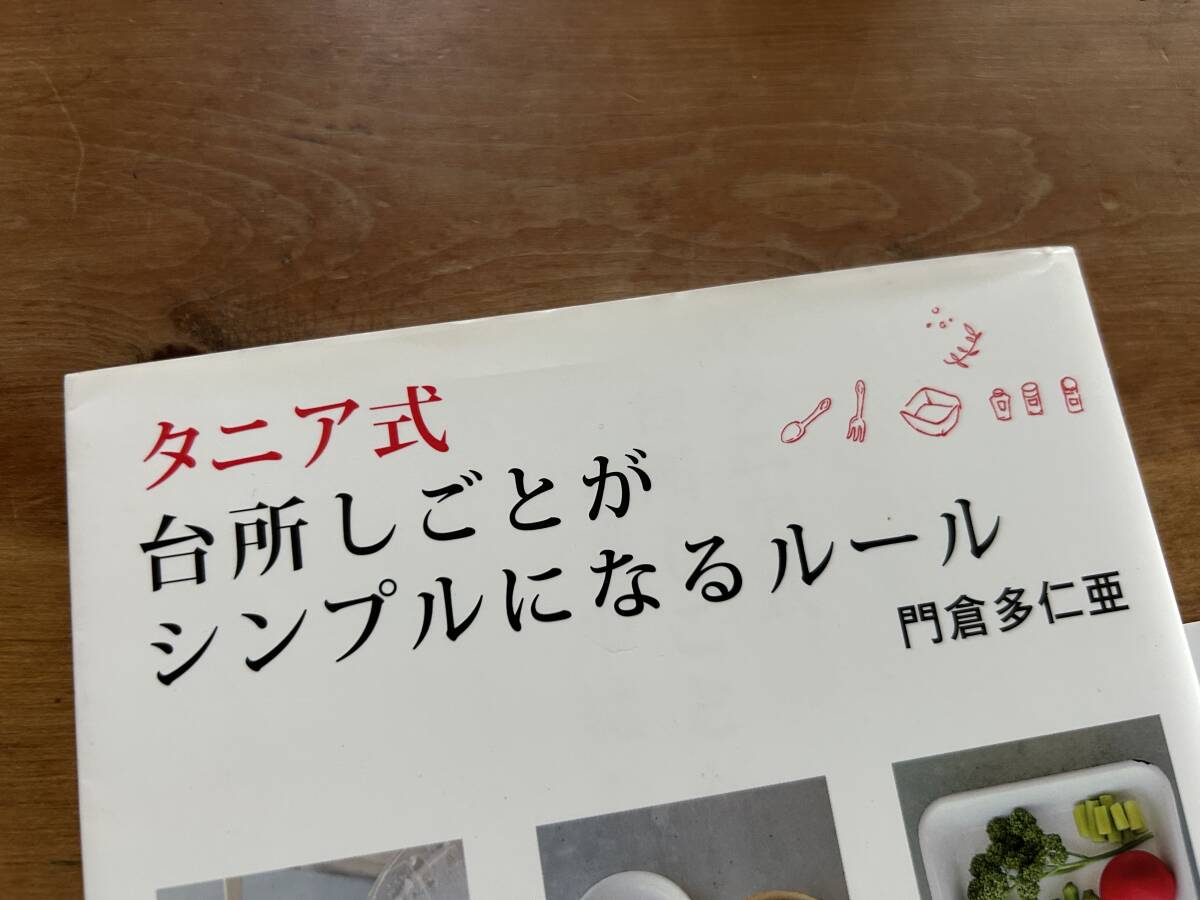 タニア式
台所しごとが
シンプルになるルール
門倉多仁亜